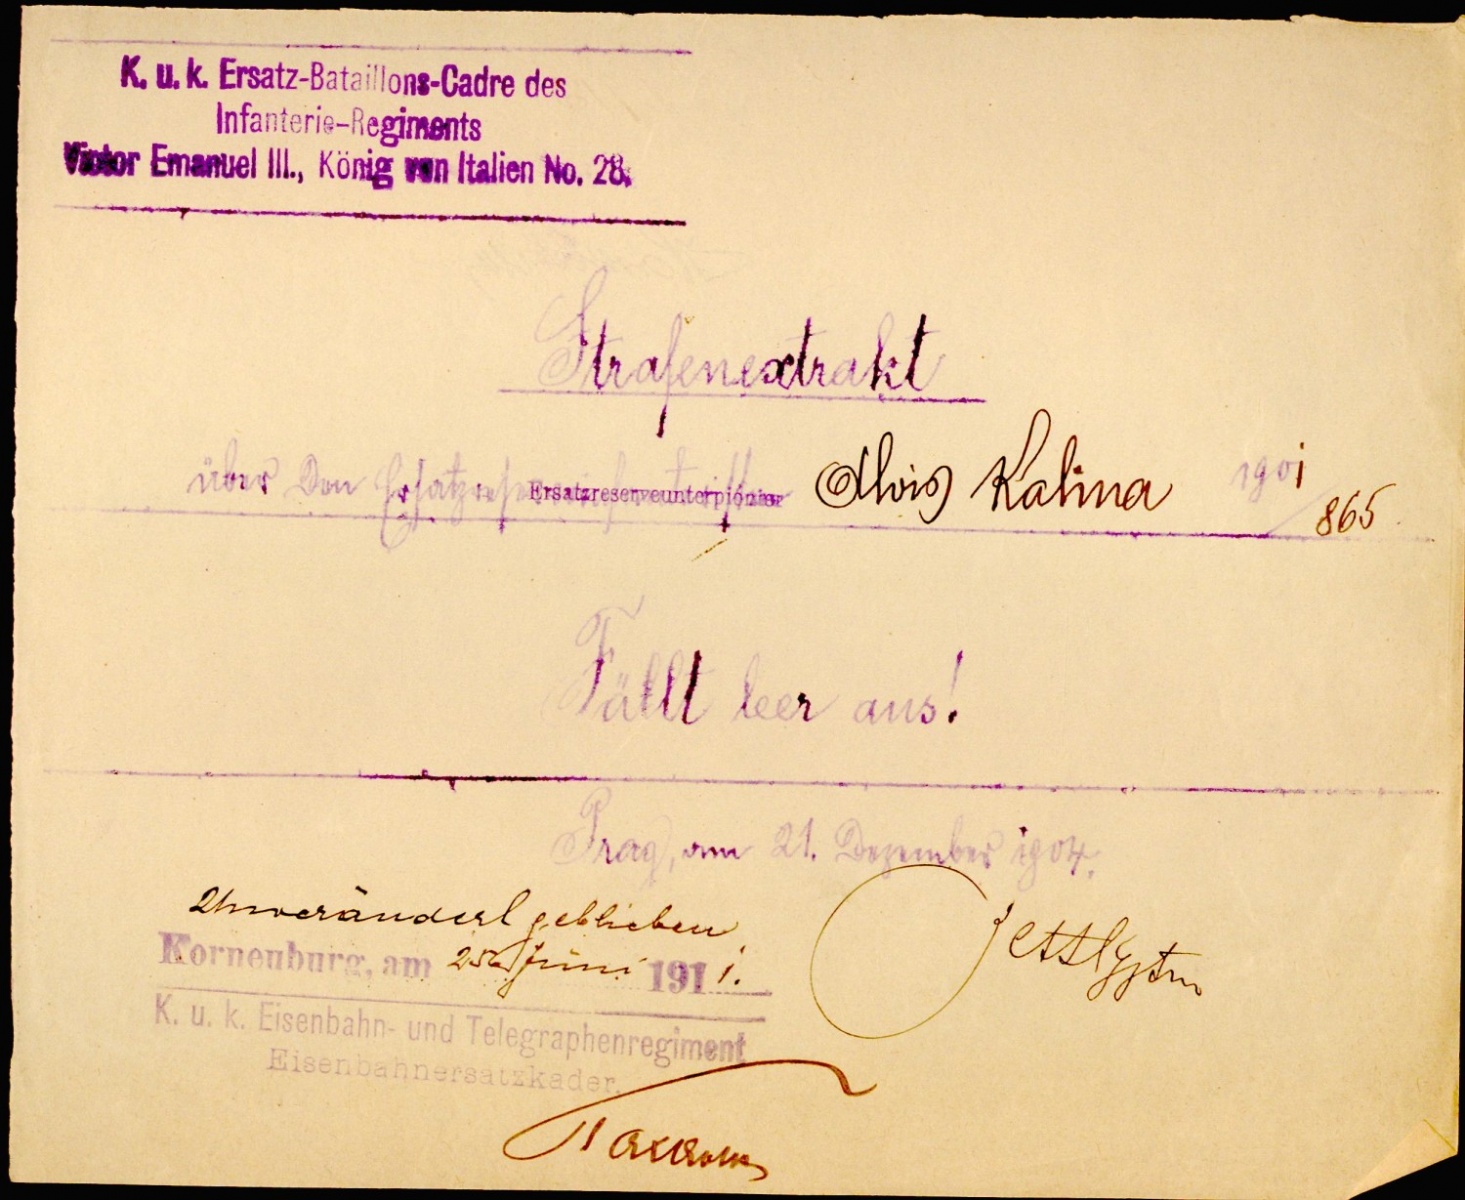 K. u. k. Ersatz-Bataillons-Cadre des
Infanterie-Regiments
Victor Emanuel III., König von Italien No. 28.
Strafenextrakt
über den Ersatzreserveunterpionier Alois Kalina 1901/865
Fällt leer aus!
Prag, am 21. Dezember 1904.
Unverändert geblieben
Korneuburg, am 25/Juni 1911.
K. u. k. Eisenbahn- und Telegraphenregiment
Eisenbahnersatzkader.